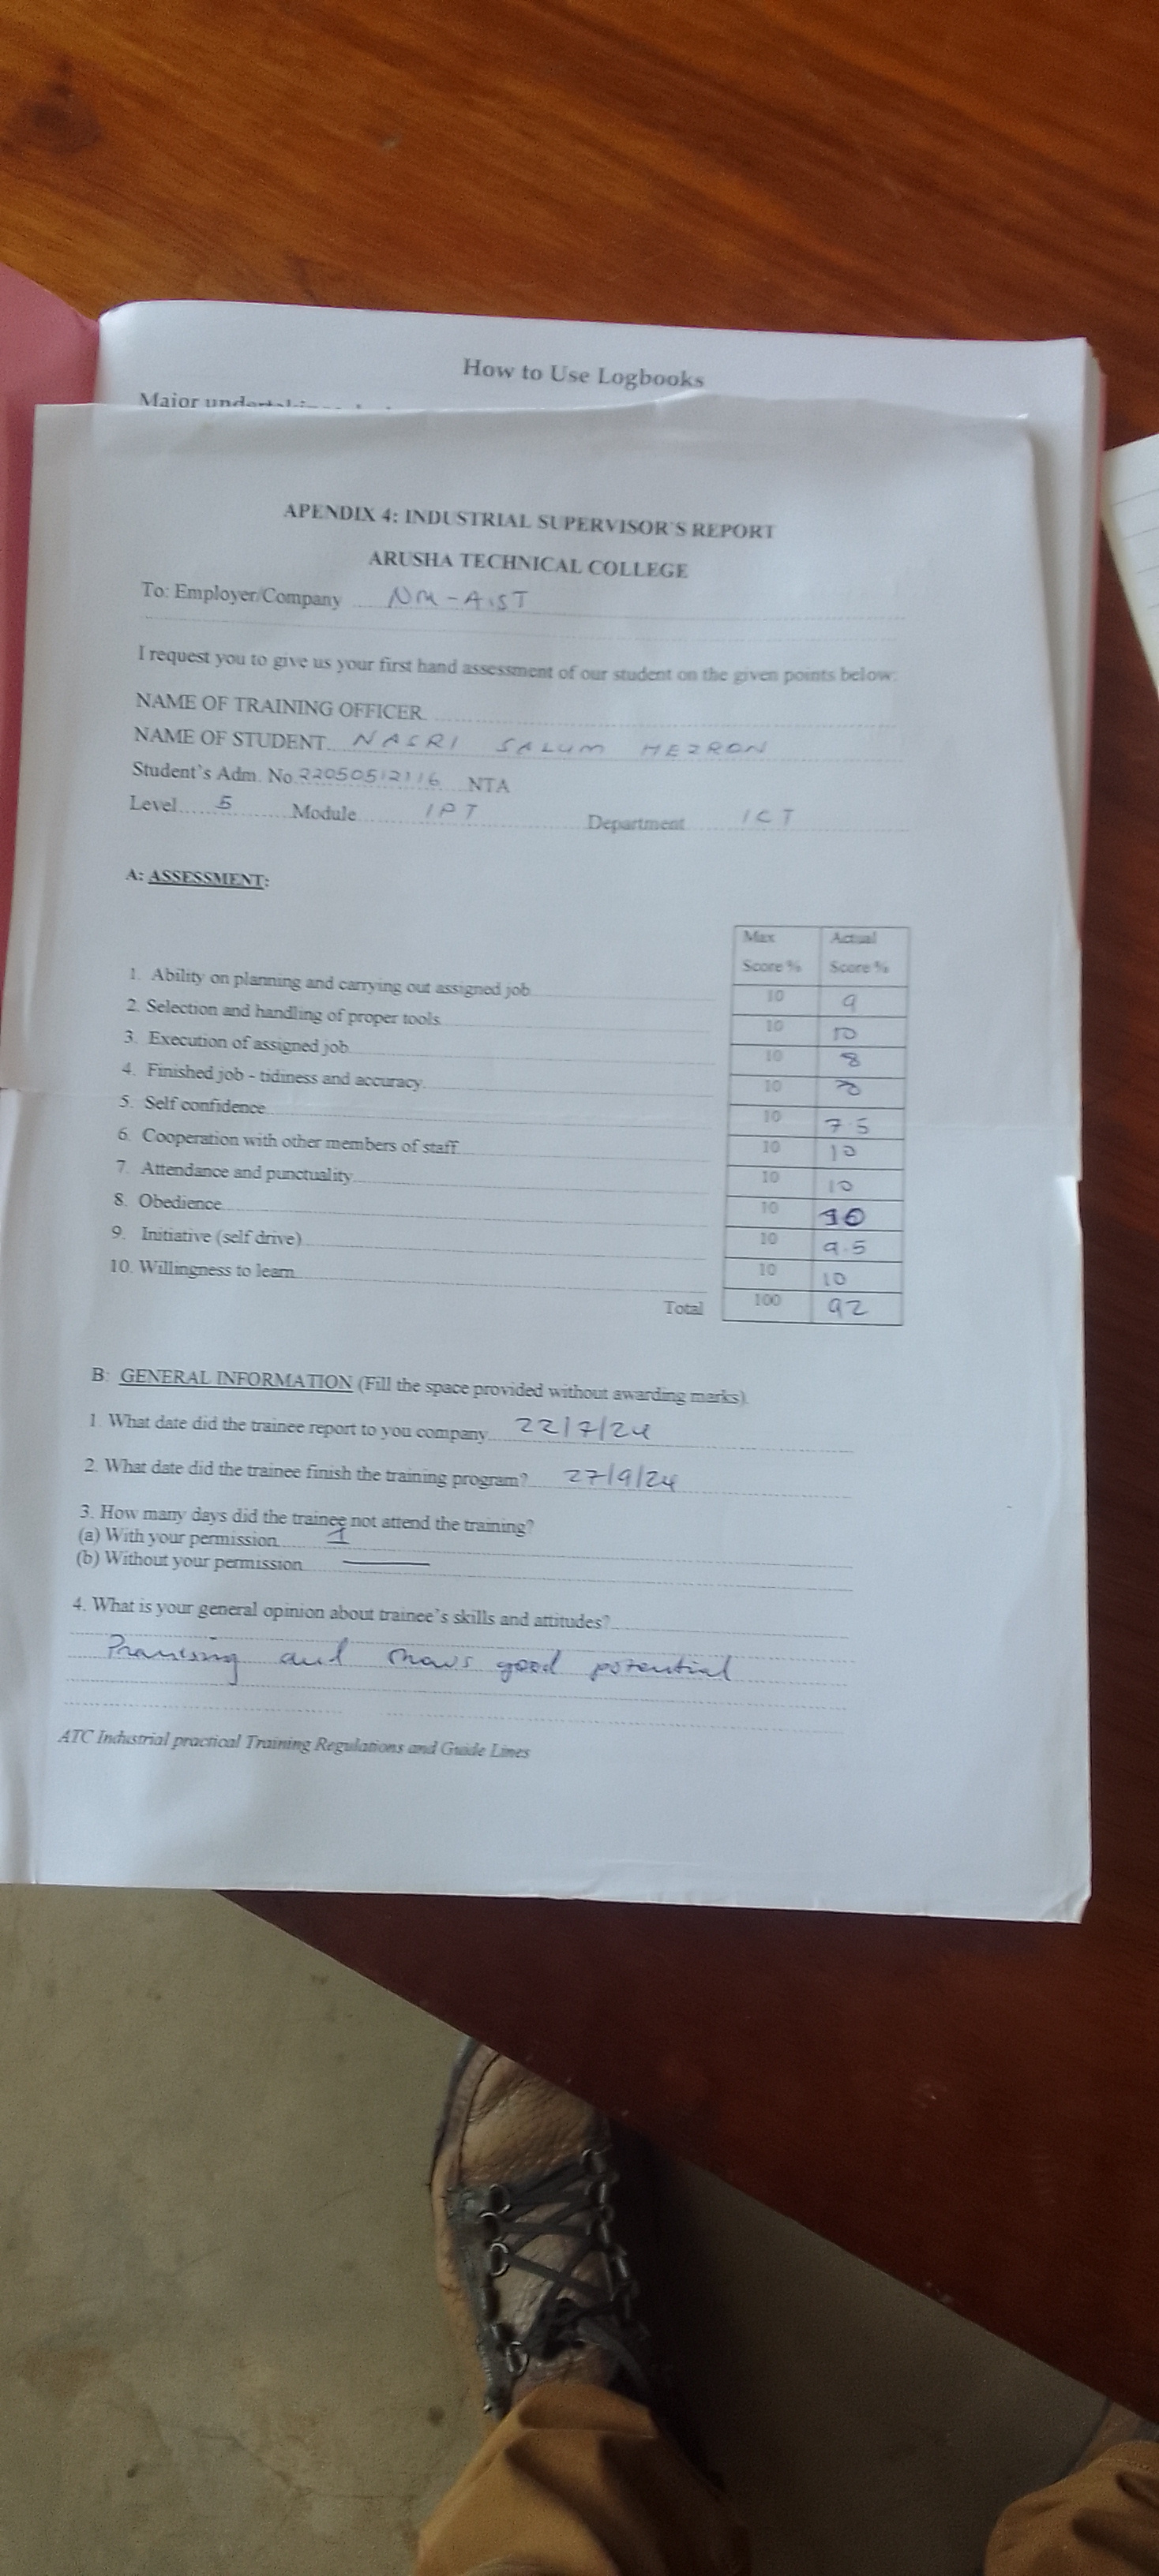 How to Use Logbooks
Major
APENDIX 4: INDUSTRIAL SUPERVISOR'S REPORT
ARUSHA TECHNICAL COLLEGE
To: Employer/Company NM-AIST
I request you to give us your first hand assessment of our student on the given points below:
NAME OF TRAINING OFFICER
NAME OF STUDENT NASRI SALUM HEZRON
Student's Adm. No 22050512116 NTA
Level 5 Module IPT Department ICT
A: ASSESSMENT:
Max Score % Actual Score %
1. Ability on planning and carrying out assigned job 10 9
2. Selection and handling of proper tools 10 10
3. Execution of assigned job 10 8
4. Finished job - tidiness and accuracy 10
5. Self confidence 10 7.5
6. Cooperation with other members of staff 10 10
7. Attendance and punctuality 10 10
8. Obedience 10 10
9. Initiative (self drive) 10 9.5
10. Willingness to learn 10 10
Total 100 92
B: GENERAL INFORMATION (Fill the space provided without awarding marks)
1. What date did the trainee report to you company 22/7/24
2. What date did the trainee finish the training program? 27/9/24
3. How many days did the trainee not attend the training?
(a) With your permission 1
(b) Without your permission
4. What is your general opinion about trainee's skills and attitudes?
Promising and shows good potential
ATC Industrial practical Training Regulations and Guide Lines